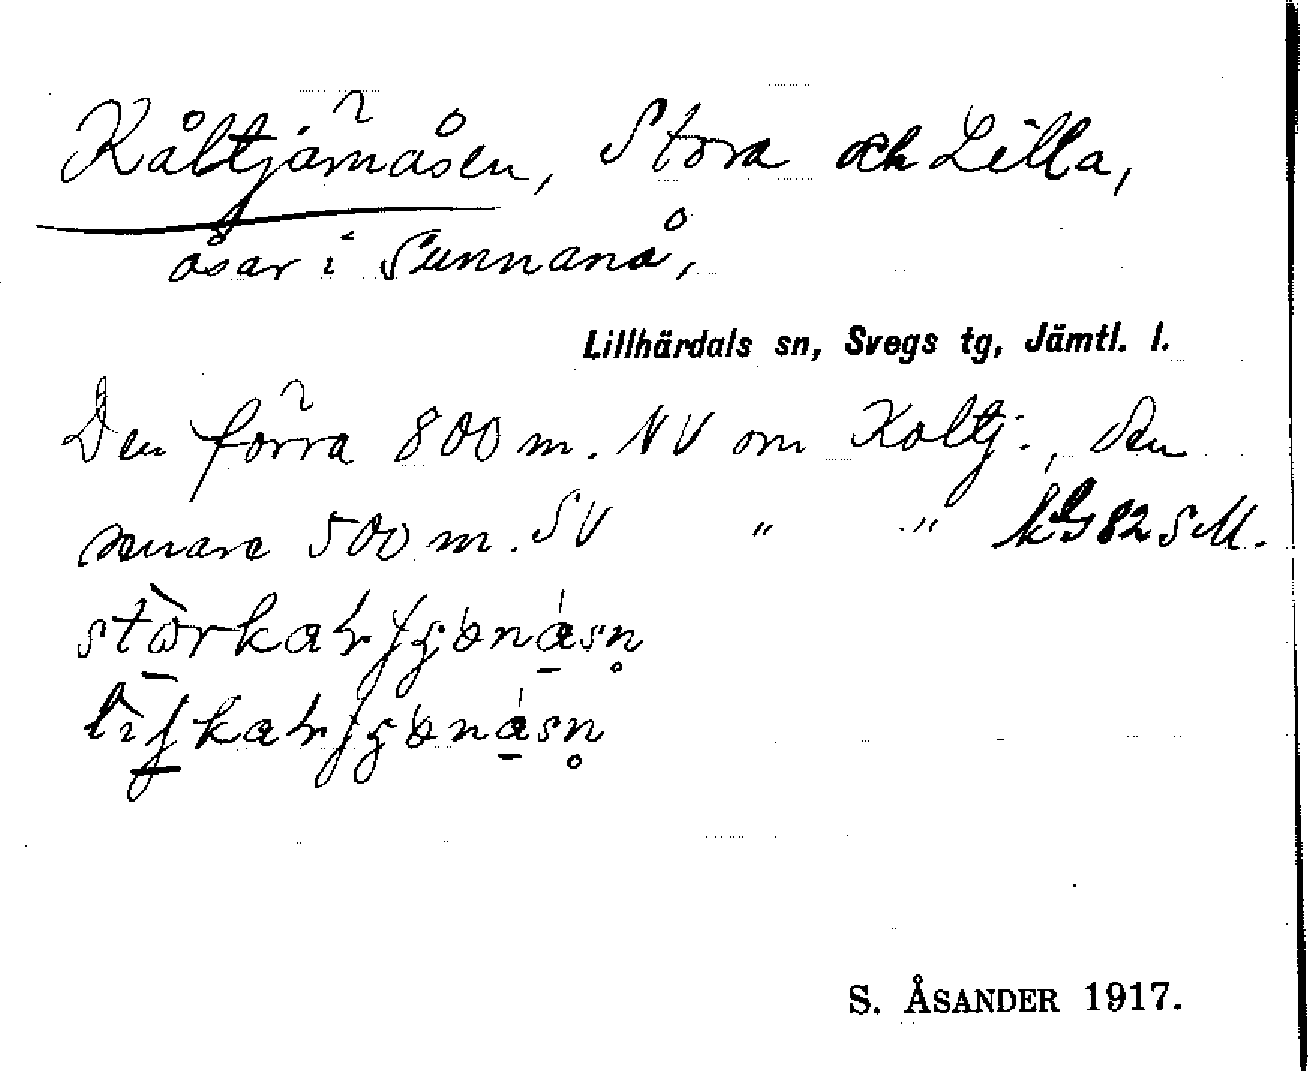 Kåltjärnåsen, Stora och Lilla,
åsar i Sunnanå,
Lillhärdals sn, Svegs tg, Jämtl. l.
Den förra 800 m. NV om Koltj., den
senare 500 m. SV " " 82 SM.
S. ÅSANDER 1917.